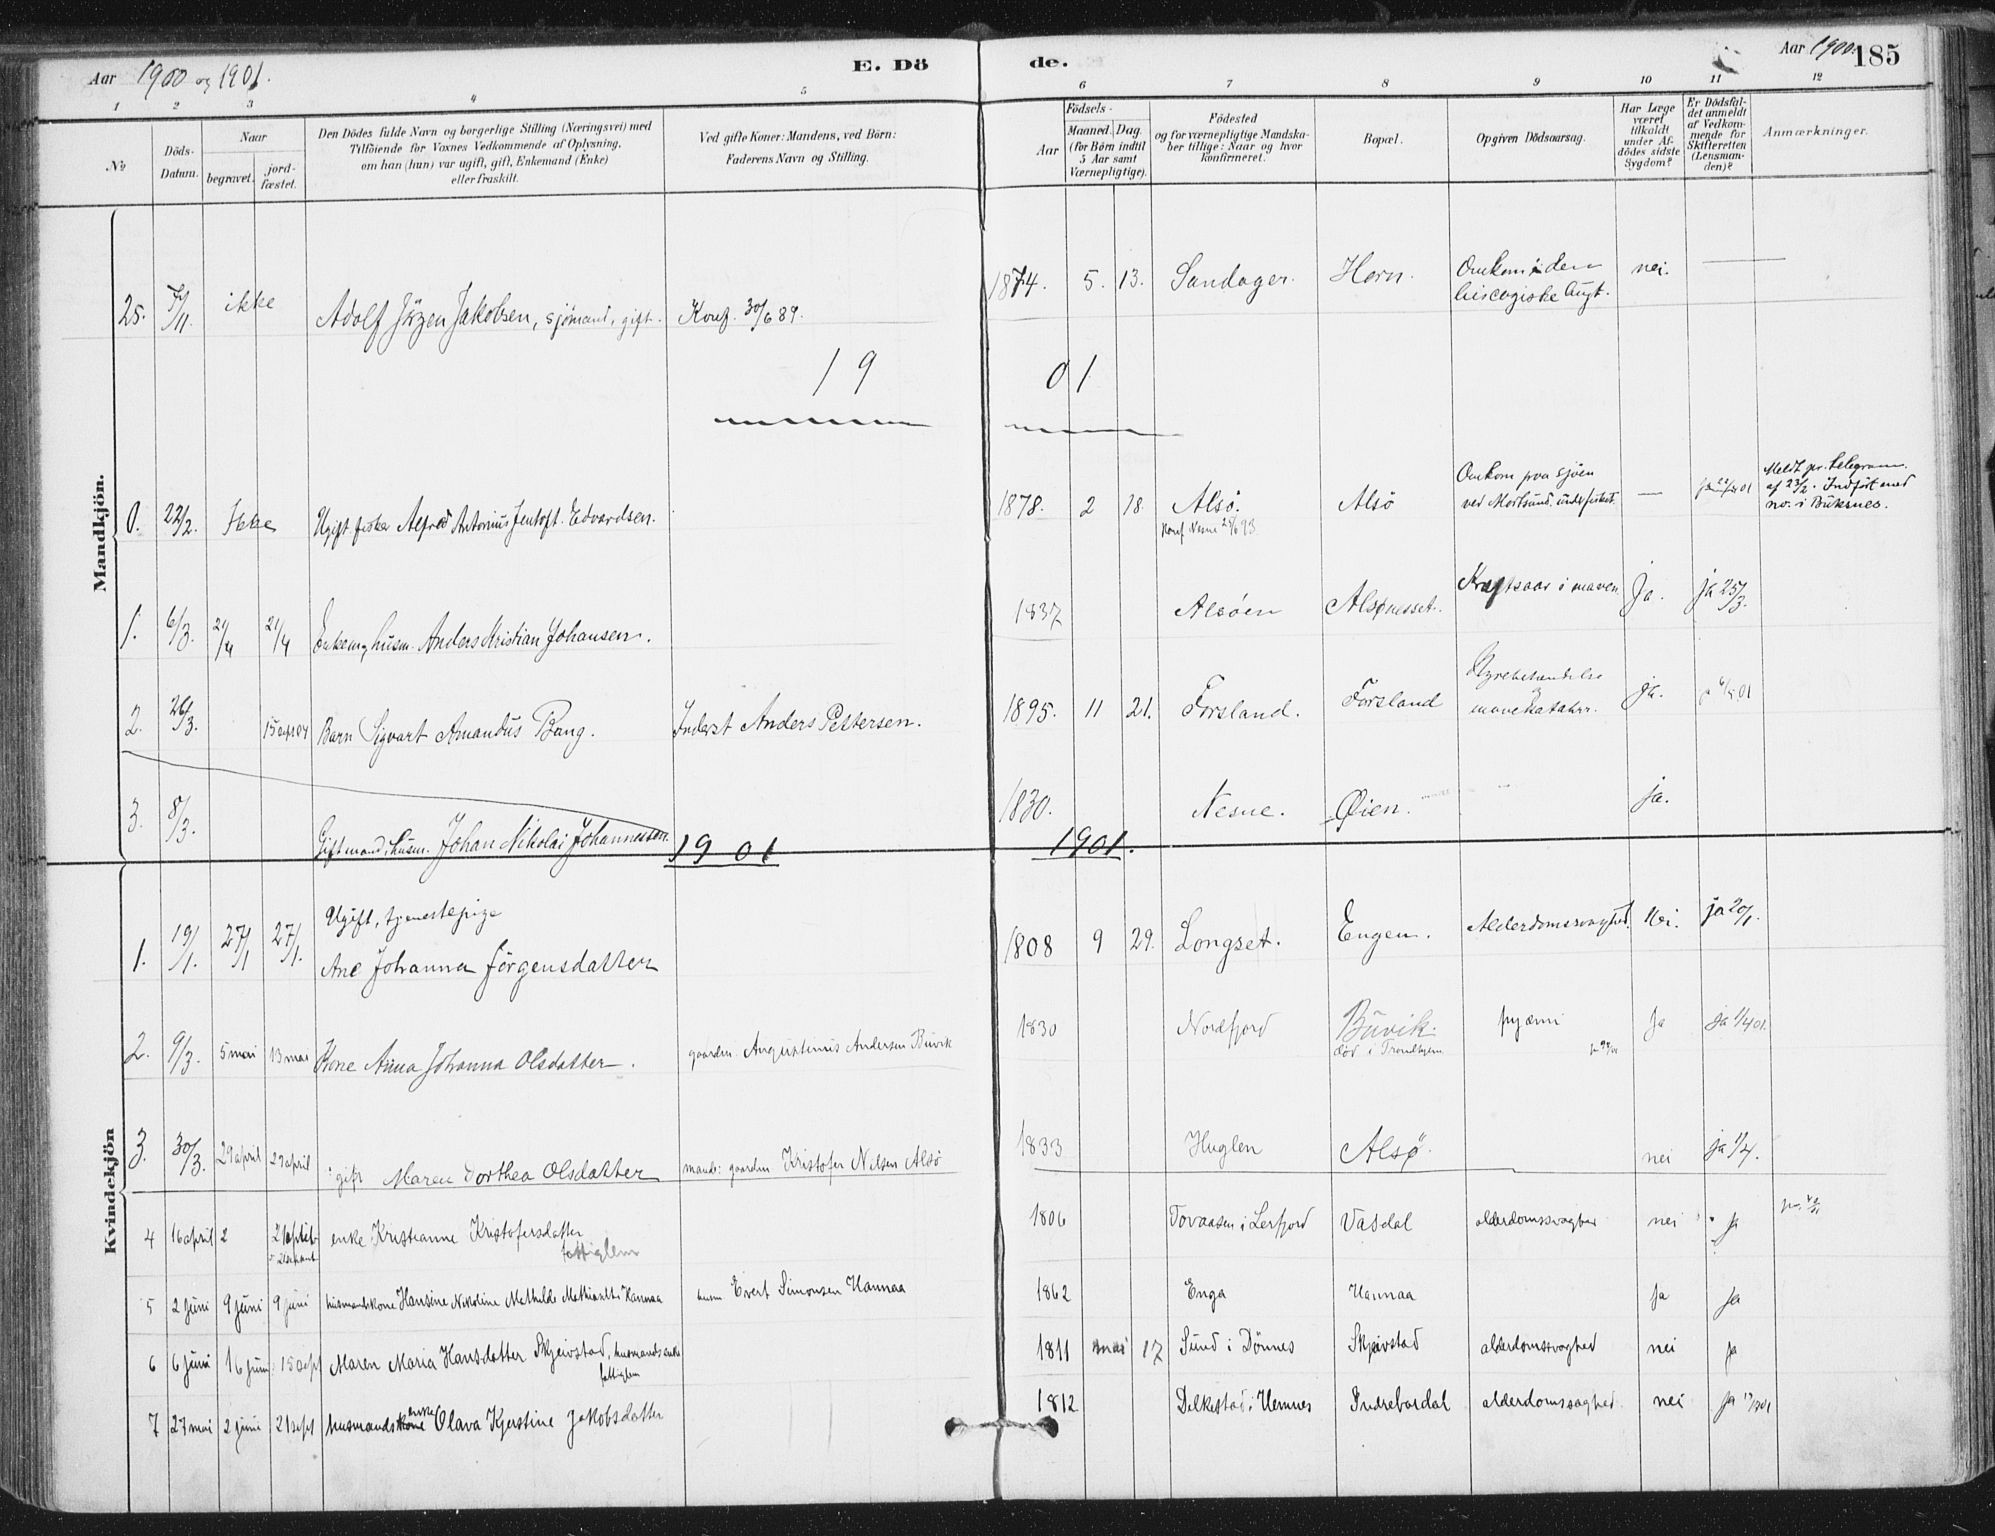 Aar 1900 og 1901.
E. Dö
de.
Aar 1900.
185
1 2 3 4 5 6 7 8 9 10 11 12
No
Döds-
Datum.
Naar
begravet.
jord-
fæstet.
Den Dödes fulde Navn og borgerlige Stilling (Næringsvei) med
Tilföiende for Voxnes Vedkommende af Oplysning,
om han (hun) var ugift, gift, Enkemand (Enke)
eller fraskilt.
Ved gifte Koner: Mandens, ved Börn:
Faderens Navn og Stilling.
Födsels-
Aar
Maaned. Dag.
(for Börn indtil
5 Aar samt
Værnepligtige).
Födested
og for værnepligtige Mandska-
ber tillige: Naar og hvor
konfirmeret.
Bopæl.
Opgiven Dödsaarsag.
Har Læge
været
tilkaldt
under Af-
dödes sidste
Sygdom?
Er Dödsfal-
det anmeldt
af Vedkom-
mende for
Skifteretten
(Lensman-
den)?
Anmærkninger.
Mandkjön.
25. ikke Adolf Jörgen Jakobsen, sjömand, gift. Konf. 30/6 89. 1874. 5. 13. Sandager. Horn. Omkom i den nei.
19 01
0. 22/2. Ikke Ugift fisker Alfred Antonius Jentoft Edvardsen. 1878. 2 18. Alsö. Alsö Omkom paa sjöen —
Konf Nesne 93
Meldt pr. telegram
af 23/2. Indfört med
no. i Buksnes.
1. 6/3. 21/4 21/4 Enkem, husm. Anders Kristian Johansen. 1837 Alsöen Alsönesset. Kræftsaar i maven Ja. ja 25/3.
2. 26/3. Barn Sigvart Amandus Bang. Inderst Anders Pettersen. 1895. 11 21. Forsland. Forsland mavekatahrr. ja.
3. 8/3. Gift mand, husm. Johan Nikolai Johannessen. 1830. Nesne. Öien. ja.
1901 1901.
Kvindekjön
1. 19/1. 27/1 27/1. Ugift, tjenestepige
Ane Johanna Jörgensdatter 1808 9 29. Longset. Engen. Alderdomssvaghed. Nei. ja 20/1.
2. 9/3. 5 mai 13 mai Kone Anna Johanna Olsdatter. gaardm. Augustinus Andersen Buvik 1830 Nordfjord Buvik. pyæmi Ja ja 1/4 01.
död i Trondhjem
3. 30/3. 29 april 29 april gift Maren Dorthea Olsdatter mand: gaardm Kristofer Nilsen Alsö 1833 Huglen Alsö. nei ja 1/4.
4 16 april 2 enke Kristianne Kristofersdatter 1806 Tovaasen i Lerfjord Vasdal alderdomssvaghed nei ja
fattiglem
5 2 juni 9 juni 9 juni husmandskone Hansine Nikoline Mathilde Hannaa husm Evert Simonsen Hannaa 1862 Enga Hannaa ja ja
6 6 juni 16 juni 15 sept Maren Maria Hansdatter Skjeivstad, husmandsenke 1811 mai 17 Sund i Dönnes Skjeivstad alderdomssvaghed nei ja
fattiglem
7 27 mai 2 juni 21 sept husmandskone enke Olava Kjerstine Jakobsdatter 1812 i Hemnes Indrebardal alderdomssvaghed nei ja